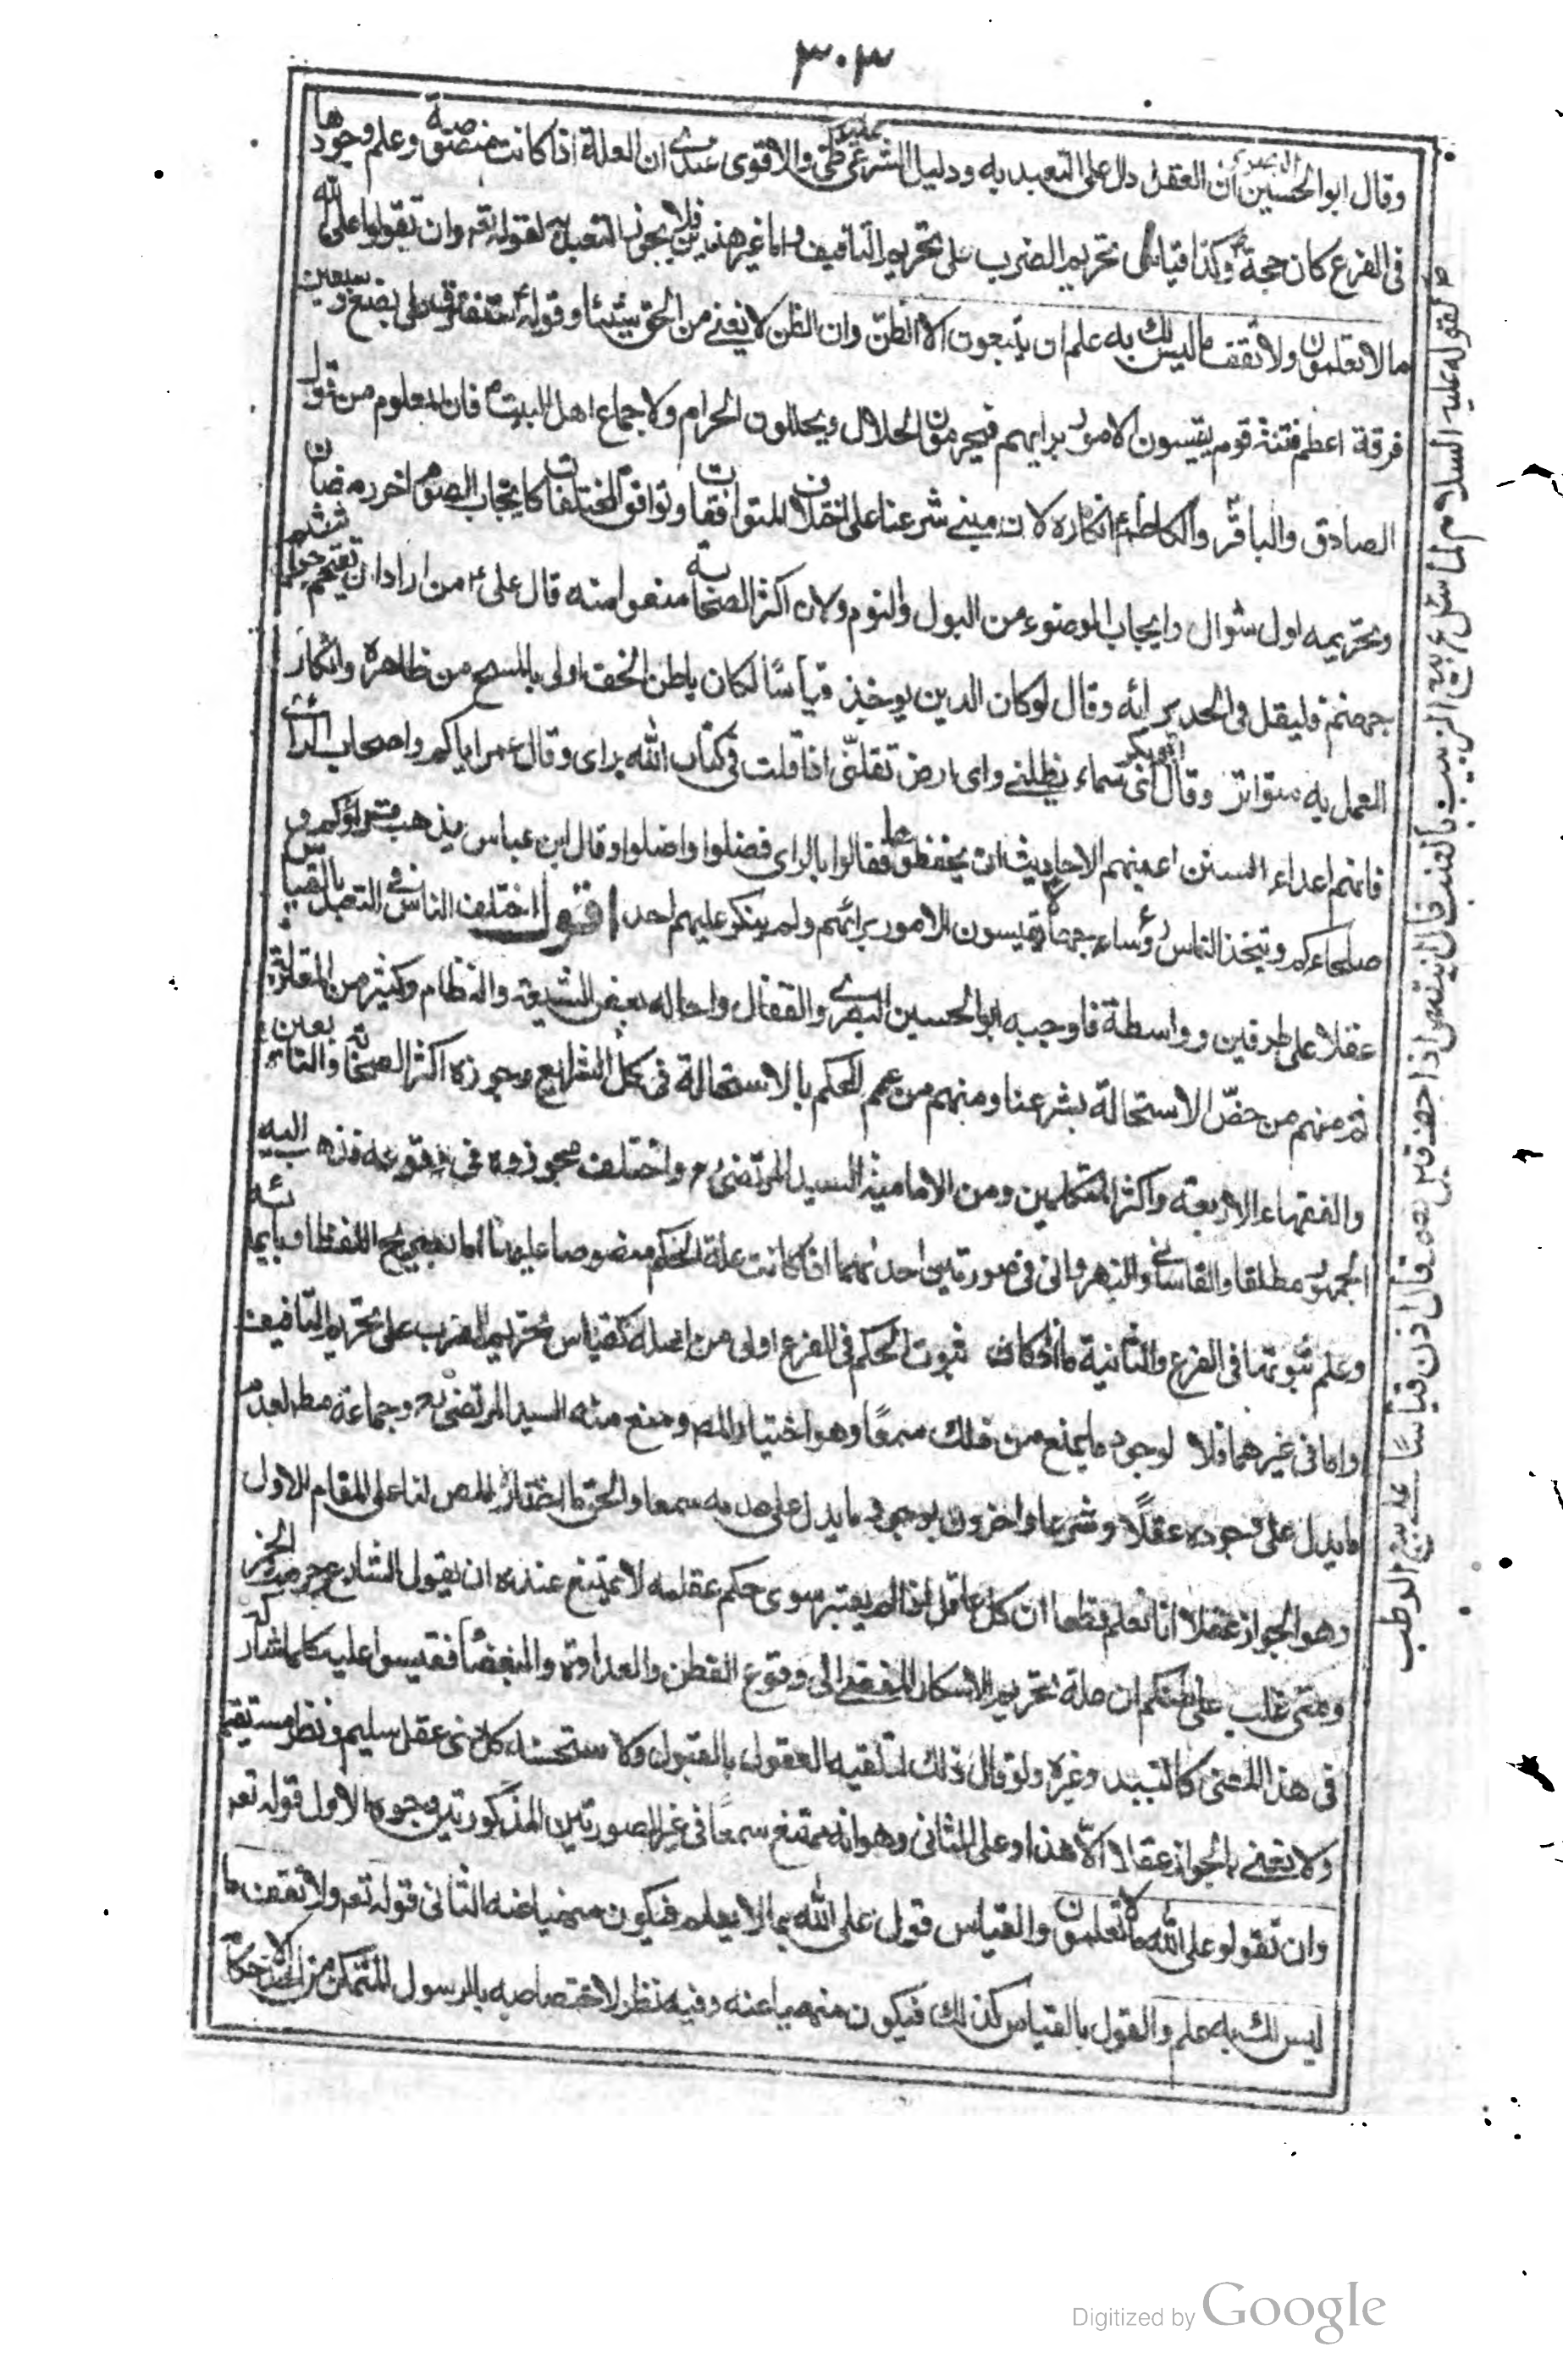 ٣٠٣
وقال ابوالحسين البصرى ان العقل دل على التعبد به ودليل الشرعى ظنى والاقوى عندى ان العلة اذا كانت منصوصة وعلم وجودها
فى الفرع كان حجة وكذا قياس تحريم الضرب على تحريم التافيف واما غير هذين فلا يجوز التعبد به لقوله تعم وان تقولوا على الله
ما لا تعلمون ولا تقف ما ليس لك به علم ان يتبعون الا الظن وان الظن لا يغنى من الحق شيئا وقوله ستفترق امتى على بضع وسبعين
فرقة اعظم فتنة قوم يقيسون الامور برايهم فيحرمون الحلال ويحللون الحرام ولاجماع اهل البيت ع فان المعلوم من قول
الصادق والباقر والكاظم ع انكاره لان مبنى شرعنا على اختلاف المتوافقات وتوافق المختلفات كايجاب الصوم اخر رمضان
وتحريمه اول شوال وايجاب الوضوء من البول والنوم ولان اكثر الصحابة منعوا منه قال على ع من اراد ان يقتحم جراثيم
جهنم فليقل فى الجد برايه وقال لو كان الدين يوخذ قياسًا لكان باطن الخف اولى بالمسح من ظاهره وانكار
العمل به متواتر وقال ابوبكر اى سماء يظلنى واى ارض تقلنى اذا قلت فى كتاب الله براى وقال عمر اياكم واصحاب الراى
فانهم اعداء السنن اعيتهم الاحاديث ان يحفظوها فقالوا بالراى فضلوا واضلوا وقال ابن عباس يذهب قراؤكم و
صلحاءكم ويتخذ الناس رؤساء جهالا يقيسون الامور برائهم ولم ينكر عليهم احد اقول اختلف الناس فى التعبد بالقياس
عقلا على طرفين وواسطة فاوجبه ابوالحسين البصرى والقفال واحاله بعض الشيعة والنظام وكثير من المعتزلة
ثم منهم من خص الاستحالة بشرعنا ومنهم من عمم الحكم بالاستحالة فى كل الشرايع وجوزه اكثر الصحابة والتابعين
والفقهاء الاربعة واكثر المتكلمين ومن الامامية السيد المرتضى ره واختلف مجوزوه فى وقوعه فذهب اليه
الجمهور مطلقا والقاسانى والنهروانى فى صورتين احدٰيهما اذا كانت علة الحكم منصوصا عليها اما بصريح اللفظ او بايمائه
وعلم ثبوتها فى الفرع والثانية ما اذا كان ثبوت الحكم فى الفرع اولى من اصله كقياس تحريم الضرب على تحريم التافيف
واما فى غيرهما فلا لوجود ما يمنع من ذلك سمعًا وهو اختيار المصه ومنع منه السيد المرتضى ره وجماعة مطلقا لعدم
ما يدل على وجوده عقلًا وشرعا واخرون لوجود ما يدل على عدمه سمعا والحق ما اختاره المص لنا على المقام الاول
وهو الجواز عقلا انا نعلم قطعا ان كل عاقل اذا لم يعتبر سوى حكم عقله لا يمتنع عنده ان يقول الشارع حرمت الخمر
ومتى غلب على ظنكم ان علة تحريم الاسكار المفضى الى وقوع الفطن والعداوة والبغضاء فقيسوا عليه كلما شاركه
فى هذا المعنى كالنبيذ وغيره ولو قال ذلك لتلقيه العقول بالقبول ولاستحسنه كل ذى عقل سليم ونظر مستقيم
ولا نعنى بالجواز عقلا الّا هذا وعلى الثانى وهو انه ممتنع سمعًا فى غير الصورتين المذكورتين وجوه الاول قوله تعه
وان تقولو على الله ما لا تعلمون والقياس قول على الله بما لا يعلم فيكون منهيا عنه الثانى قوله تعم ولا تقف ما
ليس لك به علم والقول بالقياس كذلك فيكون منهيا عنه وفيه نظر لاختصاصه بالرسول المتمكن من الاحكام
لقوله عليه السلام لما سئل عن بيع الزبيب بالعنب فقال اينقص اذا جف قيل نعم قال اذن قياسًا على بيع الرطب
Digitized by Google